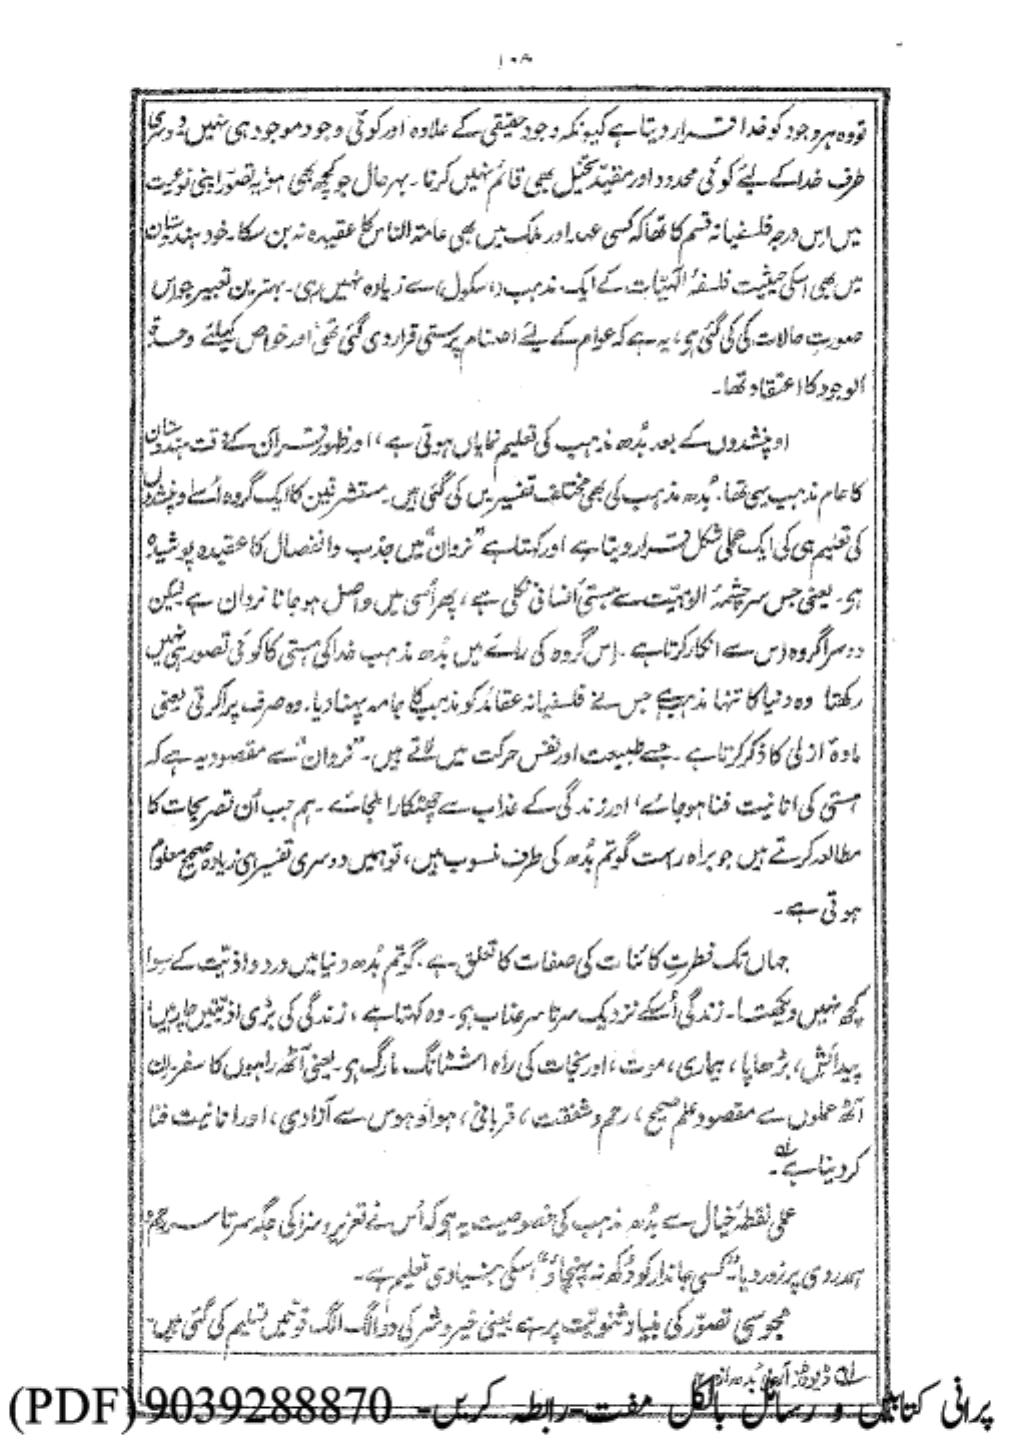 ۱۰۸
تو وہ ہر وجود کو خدا قرار دیتا ہے کیونکہ وجود حقیقی کے علاوہ اور کوئی وجود موجود ہی نہیں دوسری
طرف خدا کے لیے کوئی محدود اور مقید تخیل بھی قائم نہیں کرتا۔ بہرحال جو کچھ بھی ہو یہ تصور اپنی نوعیت
میں اس درجہ فلسفیانہ قسم کا تھا کہ کسی عہد اور ملک میں بھی عامۃ الناس کا عقیدہ نہ بن سکا۔ خود ہندوستان
میں بھی اسکی حیثیت فلسفۂ الٰہیات کے ایک مذہب (اسکول) سے زیادہ نہیں رہی۔ بہترین تعبیر جو اس
صورتِ حالات کی کی گئی ہو، یہ ہے کہ عوام کے لیے اصنام پرستی قرار دی گئی تھی اور خواص کیلئے وحدۃ
الوجود کا اعتقاد تھا۔
اوپنشدوں کے بعد بُدھ مذہب کی تعلیم نمایاں ہوتی ہے، اور ظہور قرآن کے وقت ہندوستان
کا عام مذہب یہی تھا۔ بُدھ مذہب کی بھی مختلف تفسیریں کی گئی ہیں۔ مستشرقین کا ایک گروہ اُسے اوپنشدوں
کی تعلیم ہی کی ایک عملی شکل قرار دیتا ہے اور کہتا ہے "نروان" میں جذب و انفصال کا عقیدہ پوشیدہ
ہو۔ یعنی جس سرچشمۂ الوہیت سے ہستیٔ انسانی نکلی ہے، پھر اُسی میں واصل ہو جانا نروان ہے لیکن
دوسرا گروہ اس سے انکار کرتا ہے۔ اس گروہ کی رائے میں بُدھ مذہب خدا کی ہستی کا کوئی تصور ہی نہیں
رکھتا وہ دنیا کا تنہا مذہب ہے جس نے فلسفیانہ عقائد کو مذہب کا جامہ پہنا دیا۔ وہ صرف پراکرتی یعنی
مادۂ ازلی کا ذکر کرتا ہے۔ جسے طبیعت اور نفس حرکت میں لاتے ہیں۔ "نروان" سے مقصود یہ ہے کہ
ہستی کی انانیت فنا ہو جائے، اور زندگی کے عذاب سے چھٹکارا ملجائے۔ ہم جب اُن تصریحات کا
مطالعہ کرتے ہیں جو براہ راست گوتم بُدھ کی طرف منسوب ہیں، تو ہمیں دوسری تفسیر ہی زیادہ صحیح معلوم
ہوتی ہے۔
جہاں تک فطرتِ کائنات کی صفات کا تعلق ہے، گوتم بُدھ دنیا میں درد و اذیت کے سوا
کچھ نہیں دیکھتا۔ زندگی اُسکے نزدیک سرتاسر عذاب ہو۔ وہ کہتا ہے، زندگی کی بڑی اذیتیں چار ہیں:
پیدائش، بڑھاپا، بیماری، موت، اور نجات کی راہ اشٹانگ مارگ ہو۔ یعنی آٹھ راہوں کا سفر ان
آٹھ عملوں سے مقصود علم صحیح، رحم و شفقت، قربانی، ہوا و ہوس سے آزادی، اور انانیت فنا
کر دینا ہے۔ لہ
عملی نقطۂ خیال سے بُدھ مذہب کی خصوصیت یہ ہو کہ اُس نے تعزیر و سزا کی جگہ سرتاسر رحم و
ہمدردی پر زور دیا۔ "کسی جاندار کو دُکھ نہ پہنچاؤ" اسکی بنیادی تعلیم ہے۔
مجوسی تصور کی بنیاد ثنویت پر ہے یعنی خیر و شر کی دو الگ الگ قوتیں تسلیم کی گئی ہیں۔
پرانی کتابیں و رسائل بالکل مفت۔ رابطہ کریں۔ 9039288870 (PDF)